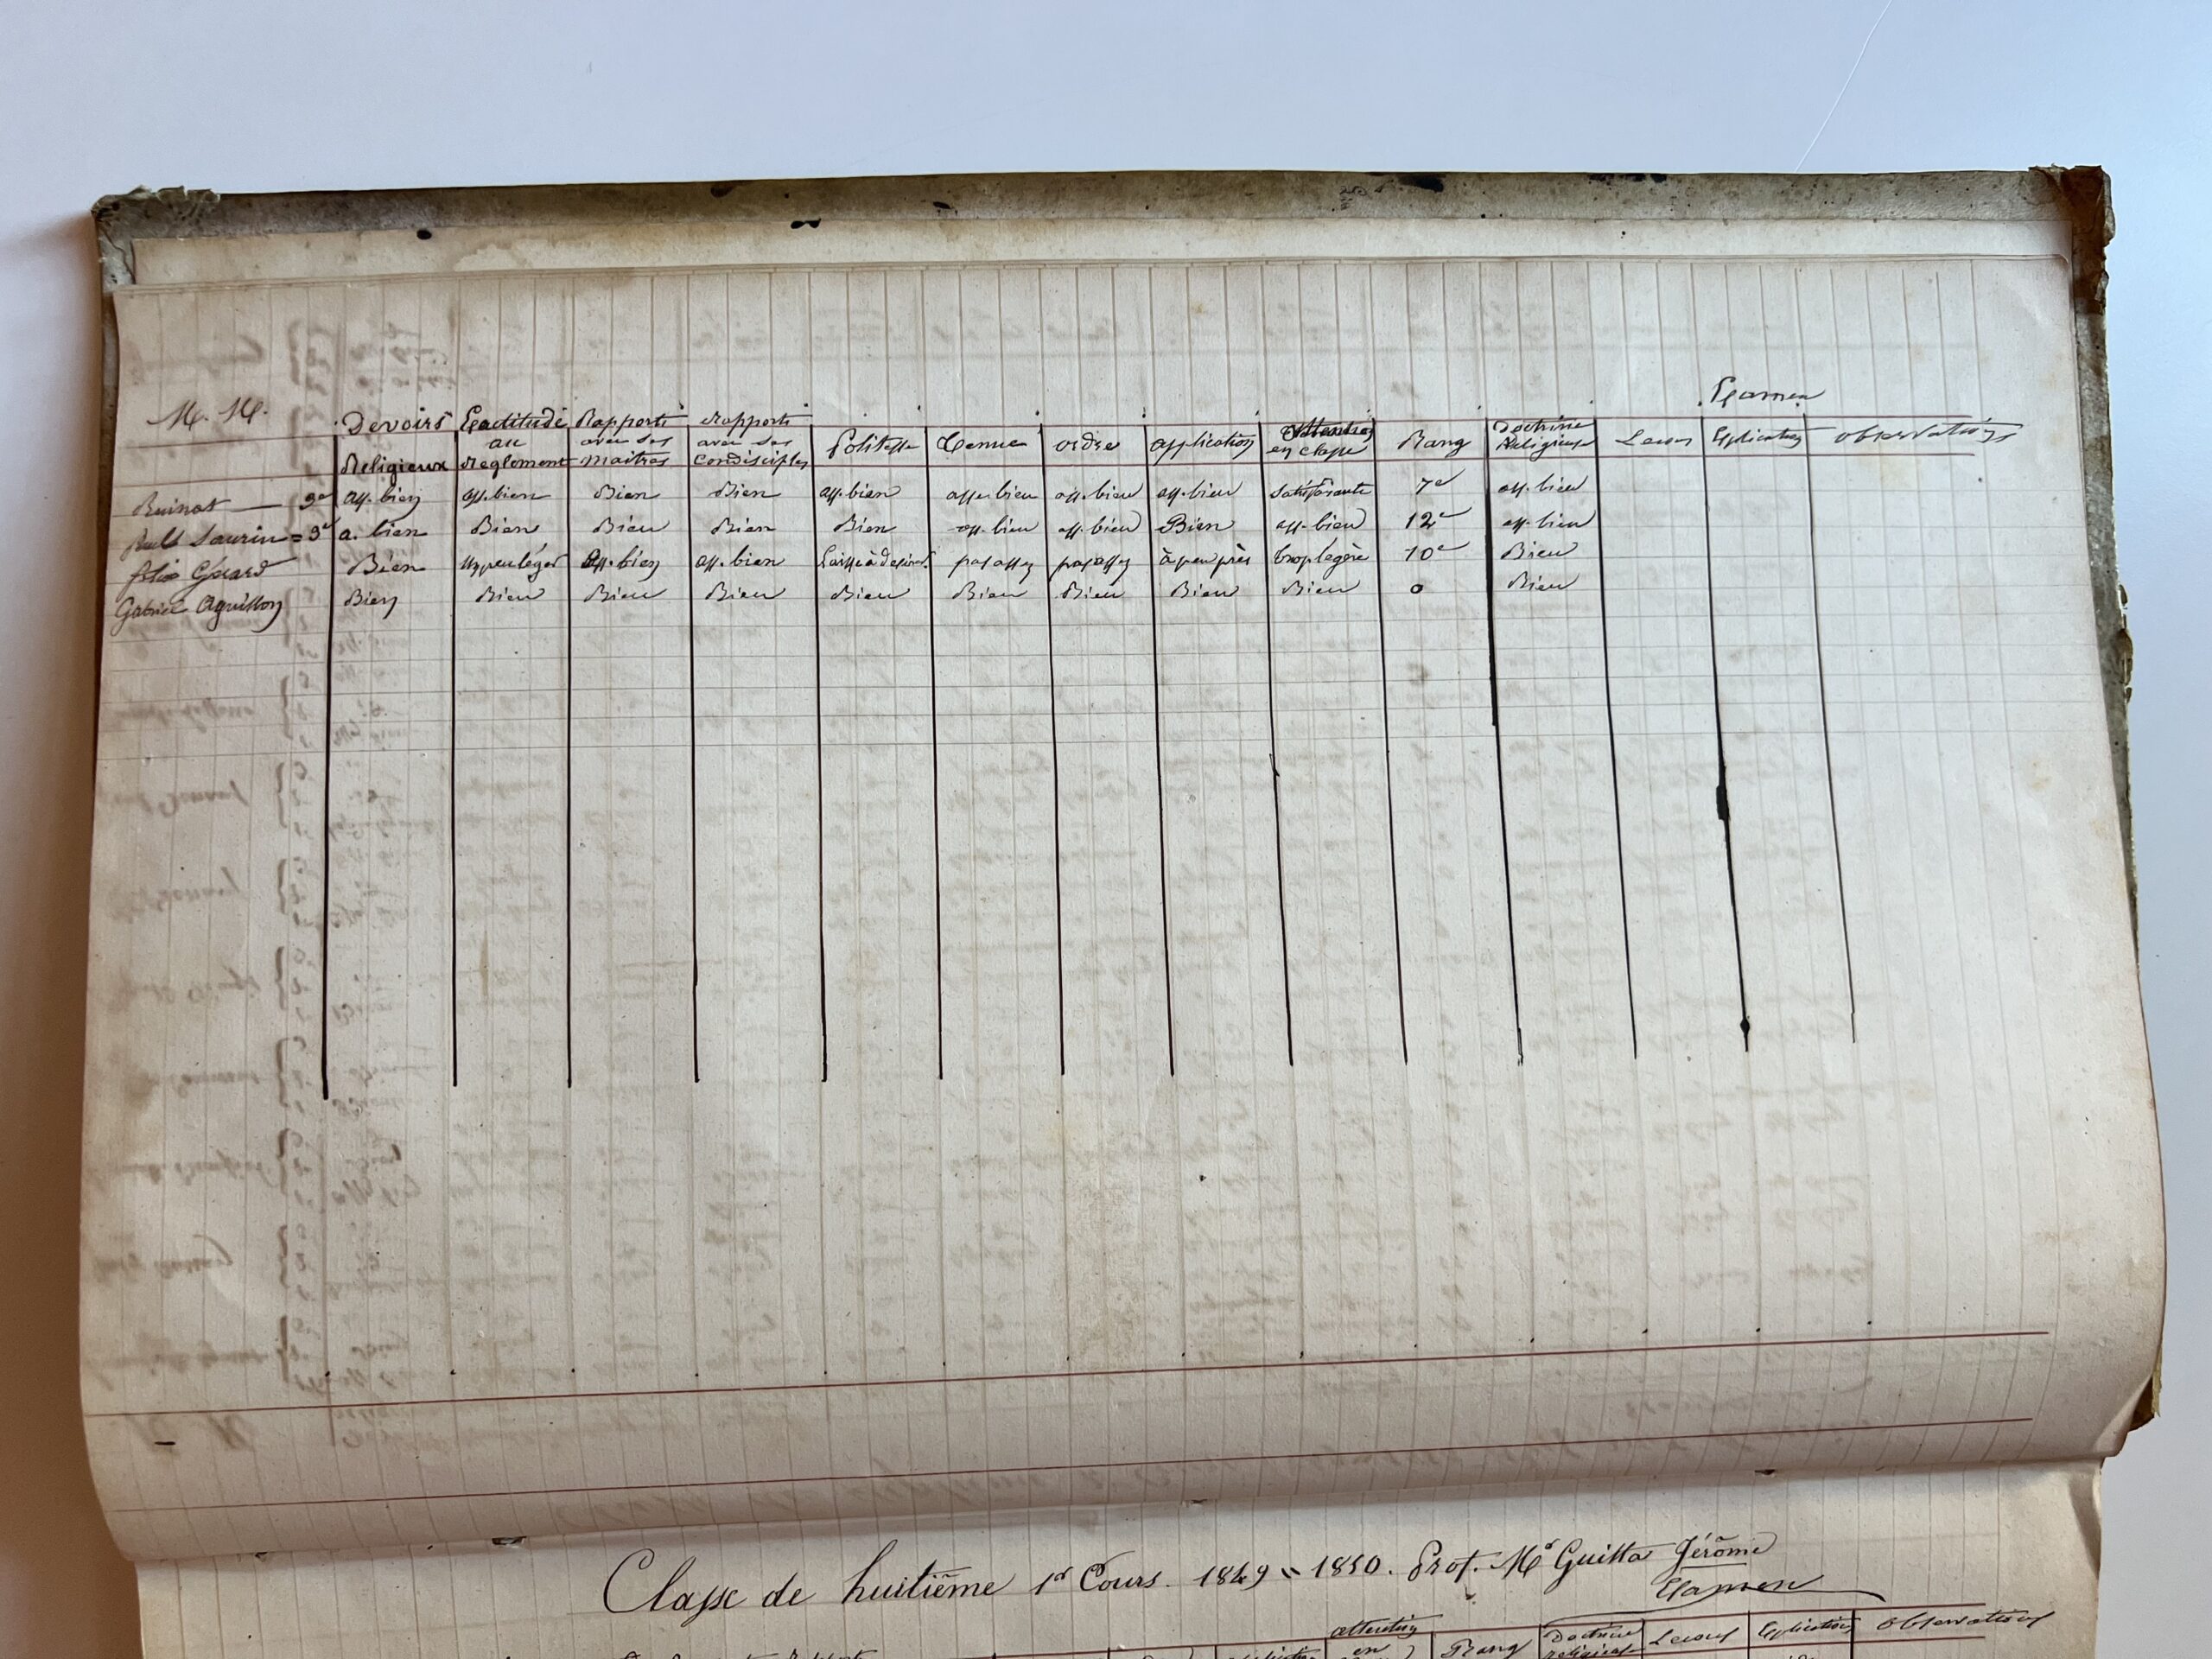 Examen
M. M. Devoirs Exactitude Rapports Rapports Doctrine
au avec ses avec ses Politesse Tenue ordre application Attention Rang Religieuse Lecons Explication observations
Religieux Reglement maitres condisciples en classe
Ruinat — 3e ass. bien ass. bien Bien Bien ass. bien assez bien ass. bien ass. bien satisfaisante 7e ass. bien
Saurin = 3e a. bien Bien Bien Bien Bien ass. bien ass. bien Bien ass. bien 12e ass. bien
félix Gérard Bien un peu léger ass. bien ass. bien Laisse à desirer pas assez pas assez à peu près trop légère 10e Bien
Gabriel Aguillon Bien Bien Bien Bien Bien Bien Bien Bien Bien 0 Bien
Classe de huitième 1r Cours. 1849 = 1850. Prof. Mr Guitta Jérôme
Examen
attention
en Rang Doctrine religieuse Lecons Explication observations